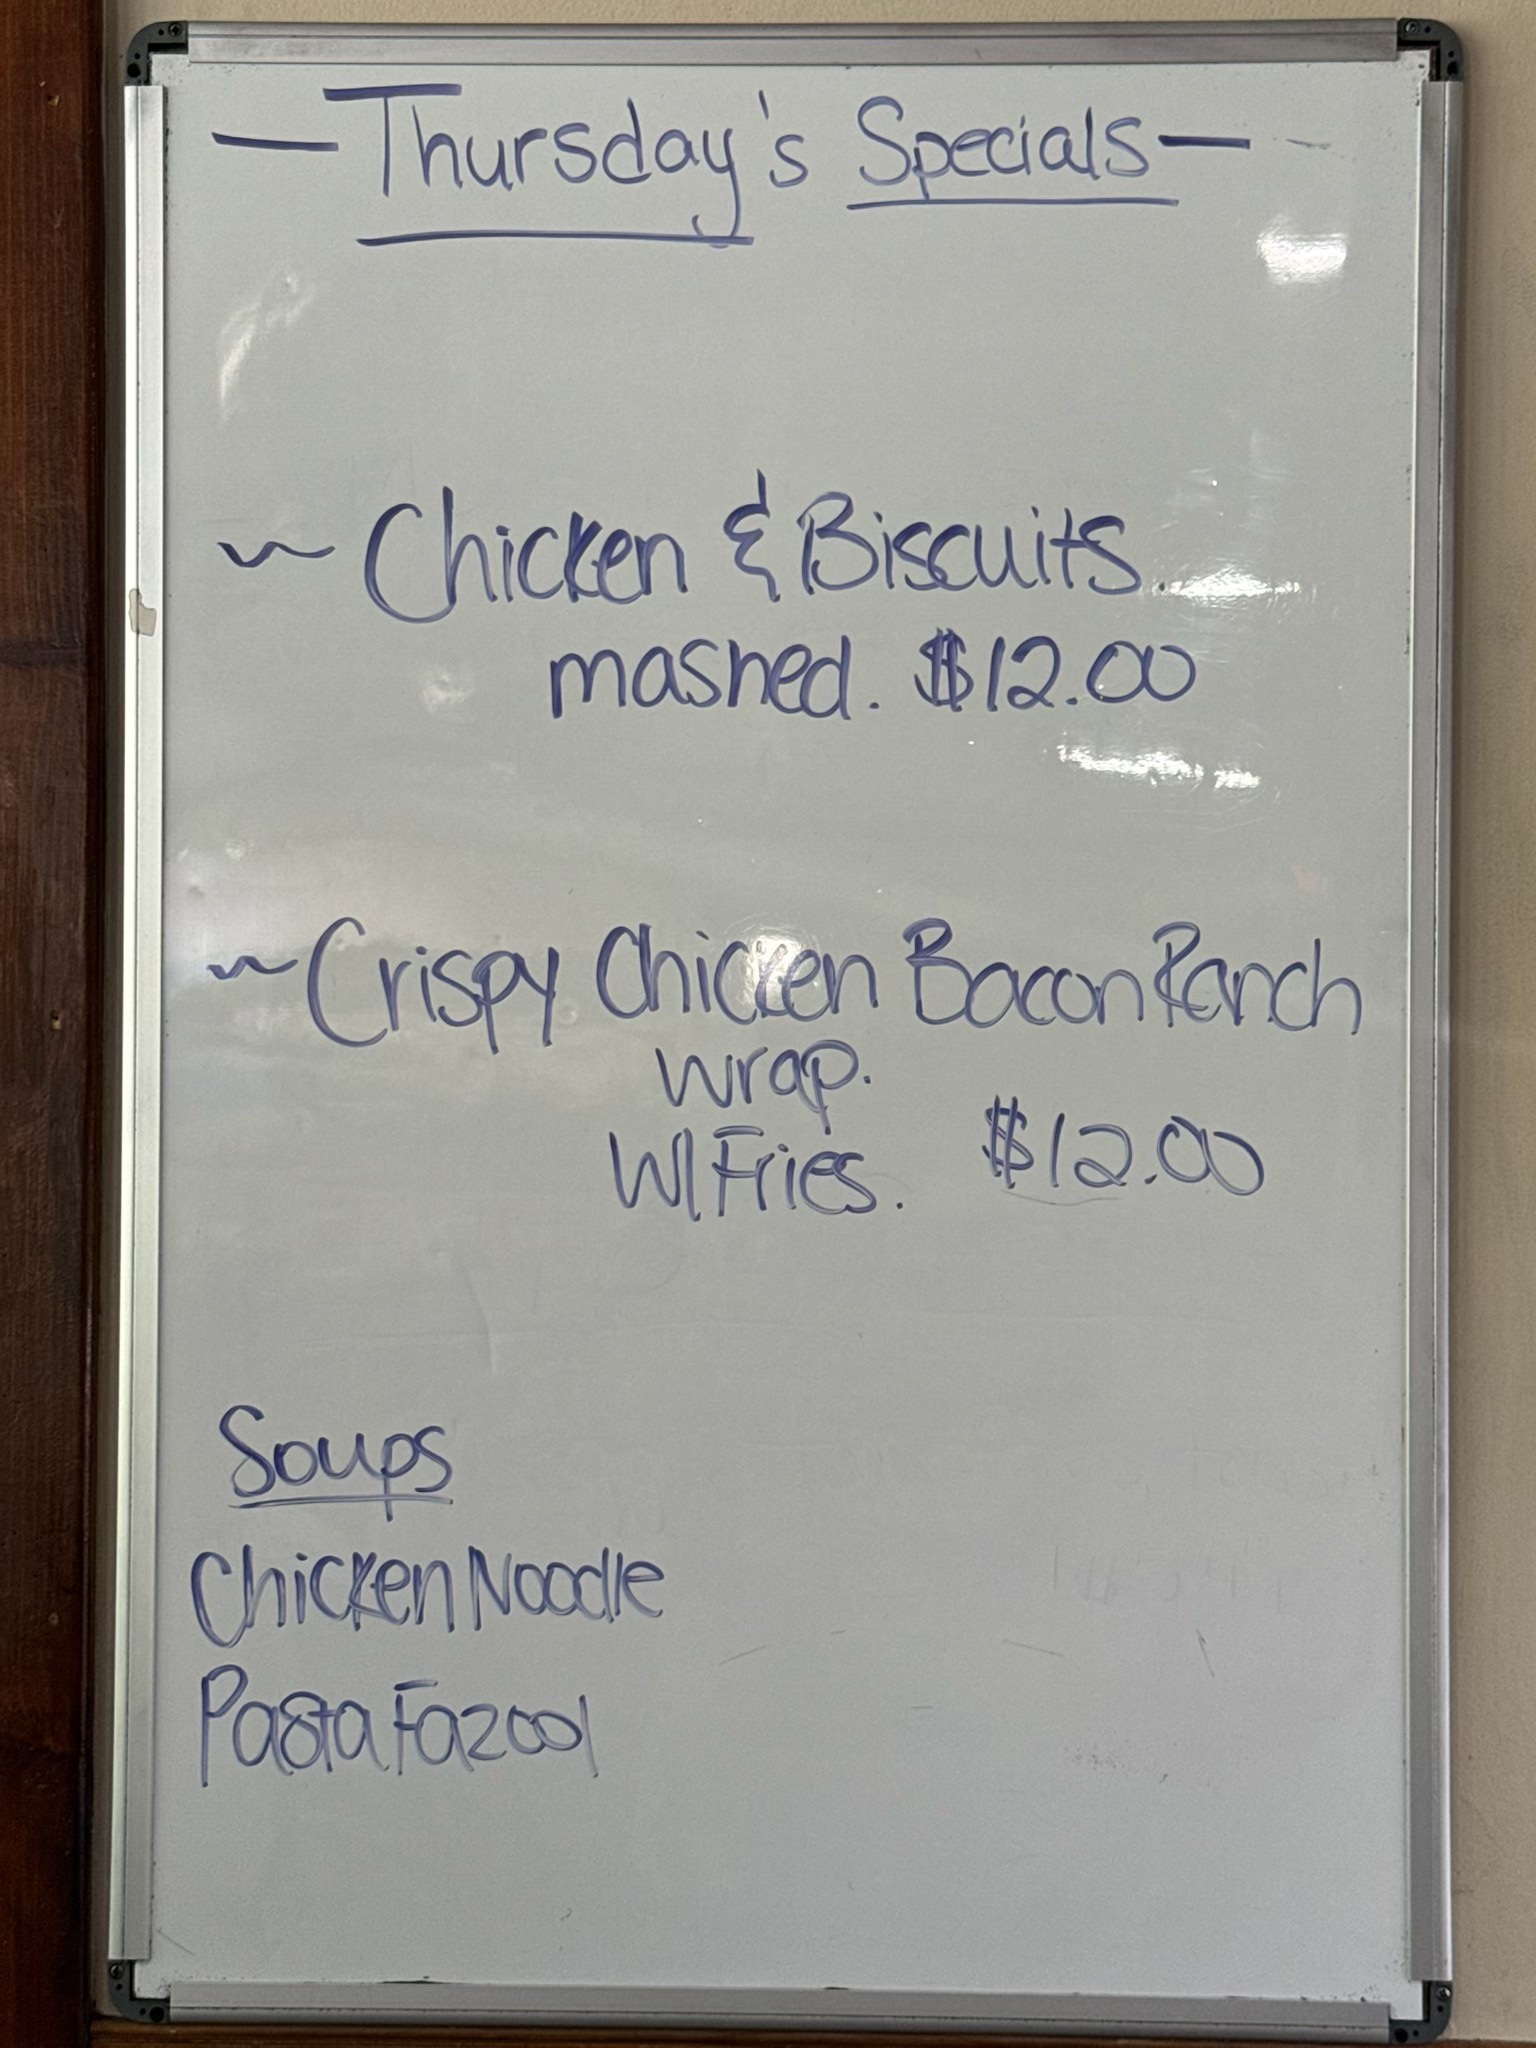 — Thursday's Specials —
~ Chicken & Biscuits.
mashed. $12.00
~ Crispy Chicken Bacon Ranch
wrap.
W/Fries. $12.00
Soups
Chicken Noodle
Pasta Fazool